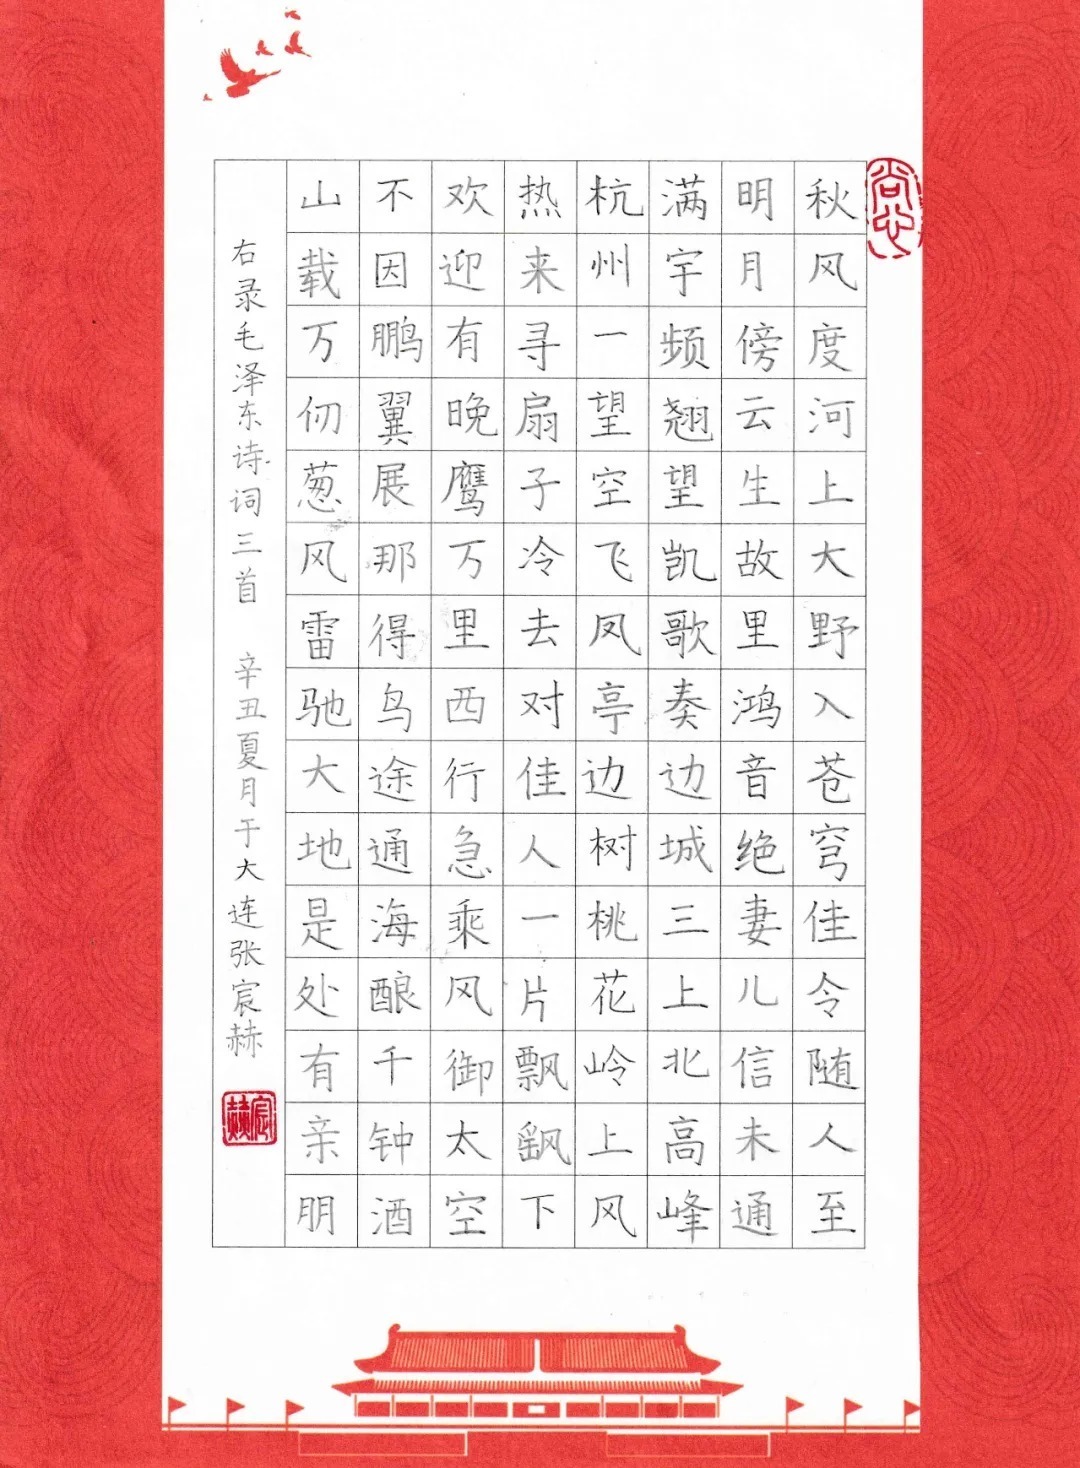 秋风度河上大野入苍穹佳令随人至
明月傍云生故里鸿音绝妻儿信未通
满宇频翘望凯歌奏边城三上北高峰
杭州一望空飞凤亭边树桃花岭上风
热来寻扇子冷去对佳人一片飘飖下
欢迎有晚鹰万里西行急乘风御太空
不因鹏翼展那得鸟途通海酿千钟酒
山载万仞葱风雷驰大地是处有亲朋
右录毛泽东诗词三首 辛丑夏月于大连张宸赫